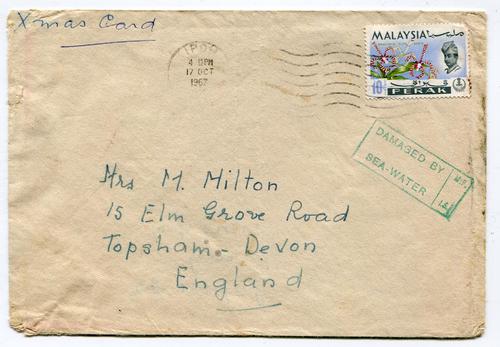 Xmas Card
IPOH
4 PM
17 OCT
1967
MALAYSIA مليسيا
10
PERAK
DAMAGED BY
SEA-WATER
Mrs M. Milton
15 Elm Grove Road
Topsham - Devon
England